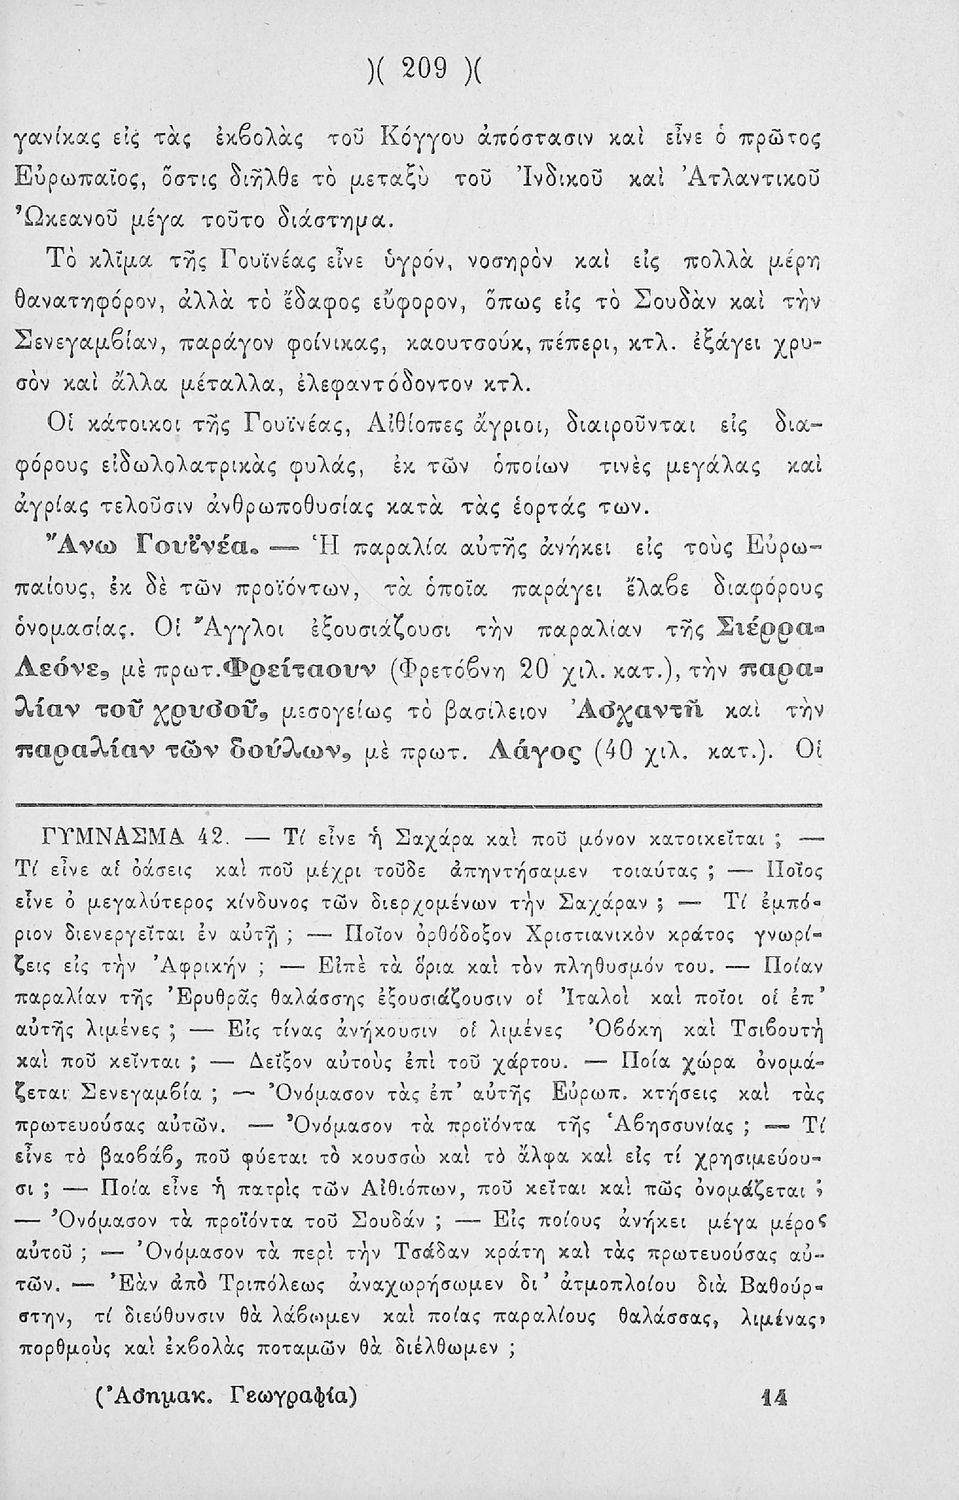 )( 209 )(
γανίκας εἰς τὰς ἐκβολὰς τοῦ Κόγγου ἀπόστασιν καὶ εἶνε ὁ πρῶτος
Εὐρωπαῖος, ὅστις διῆλθε τὸ μεταξὺ τοῦ Ἰνδικοῦ καὶ Ἀτλαντικοῦ
Ὠκεανοῦ μέγα τοῦτο διάστημα.
Τὸ κλῖμα τῆς Γουϊνέας εἶνε ὑγρόν, νοσηρὸν καὶ εἰς πολλὰ μέρη
θανατηφόρον, ἀλλὰ τὸ ἔδαφος εὔφορον, ὅπως εἰς τὸ Σουδὰν καὶ τὴν
Σενεγαμβίαν, παράγον φοίνικας, καουτσούκ, πέπερι, κτλ. ἐξάγει χρυ-
σὸν καὶ ἄλλα μέταλλα, ἐλεφαντόδοντον κτλ.
Οἱ κάτοικοι τῆς Γουϊνέας, Αἰθίοπες ἄγριοι, διαιροῦνται εἰς δια-
φόρους εἰδωλολατρικὰς φυλάς, ἐκ τῶν ὁποίων τινὲς μεγάλας καὶ
ἀγρίας τελοῦσιν ἀνθρωποθυσίας κατὰ τὰς ἑορτάς των.
Ἄνω Γουϊνέα. — Ἡ παραλία αὐτῆς ἀνήκει εἰς τοὺς Εὐρω-
παίους, ἐκ δὲ τῶν προϊόντων, τὰ ὁποῖα παράγει ἔλαβε διαφόρους
ὀνομασίας. Οἱ Ἄγγλοι ἐξουσιάζουσι τὴν παραλίαν τῆς Σιέρρα-
Λεόνε, μὲ πρωτ. Φρείταουν (Φρετόβνη 20 χιλ. κατ.), τὴν παρα-
λίαν τοῦ χρυσοῦ, μεσογείως τὸ βασίλειον Ἀσχαντῆ καὶ τὴν
παραλίαν τῶν δούλων, μὲ πρωτ. Λάγος (40 χιλ. κατ.). Οἱ
ΓΥΜΝΑΣΜΑ 42. — Τί εἶνε ἡ Σαχάρα καὶ ποῦ μόνον κατοικεῖται ; —
Τί εἶνε αἱ ὀάσεις καὶ ποῦ μέχρι τοῦδε ἀπηντήσαμεν τοιαύτας ; — Ποῖος
εἶνε ὁ μεγαλύτερος κίνδυνος τῶν διερχομένων τὴν Σαχάραν ; — Τί ἐμπό-
ριον διενεργεῖται ἐν αὐτῇ ; — Ποῖον ὀρθόδοξον Χριστιανικὸν κράτος γνωρί-
ζεις εἰς τὴν Ἀφρικήν ; — Εἰπὲ τὰ ὅρια καὶ τὸν πληθυσμόν του. — Ποίαν
παραλίαν τῆς Ἐρυθρᾶς θαλάσσης ἐξουσιάζουσιν οἱ Ἰταλοὶ καὶ ποῖοι οἱ ἐπ'
αὐτῆς λιμένες ; — Εἰς τίνας ἀνήκουσιν οἱ λιμένες Ὀβόκη καὶ Τσιβουτὴ
καὶ ποῦ κεῖνται ; — Δεῖξον αὐτοὺς ἐπὶ τοῦ χάρτου. — Ποία χώρα ὀνομά-
ζεται Σενεγαμβία ; — Ὀνόμασον τὰς ἐπ' αὐτῆς Εὐρωπ. κτήσεις καὶ τὰς
πρωτευούσας αὐτῶν. — Ὀνόμασον τὰ προϊόντα τῆς Ἁβησσυνίας ; — Τί
εἶνε τὸ βαοβάβ, ποῦ φύεται τὸ κουσσὼ καὶ τὸ ἄλφα καὶ εἰς τί χρησιμεύου-
σι ; — Ποία εἶνε ἡ πατρὶς τῶν Αἰθιόπων, ποῦ κεῖται καὶ πῶς ὀνομάζεται ;
— Ὀνόμασον τὰ προϊόντα τοῦ Σουδάν ; — Εἰς ποίους ἀνήκει μέγα μέρος
αὐτοῦ ; — Ὀνόμασον τὰ περὶ τὴν Τσάδαν κράτη καὶ τὰς πρωτευούσας αὐ-
τῶν. — Ἐὰν ἀπὸ Τριπόλεως ἀναχωρήσωμεν δι' ἀτμοπλοίου διὰ Βαθούρ-
στην, τί διεύθυνσιν θὰ λάβωμεν καὶ ποίας παραλίους θαλάσσας, λιμένας,
πορθμοὺς καὶ ἐκβολὰς ποταμῶν θὰ διέλθωμεν ;
(Ἀσημακ. Γεωγραφία) 14